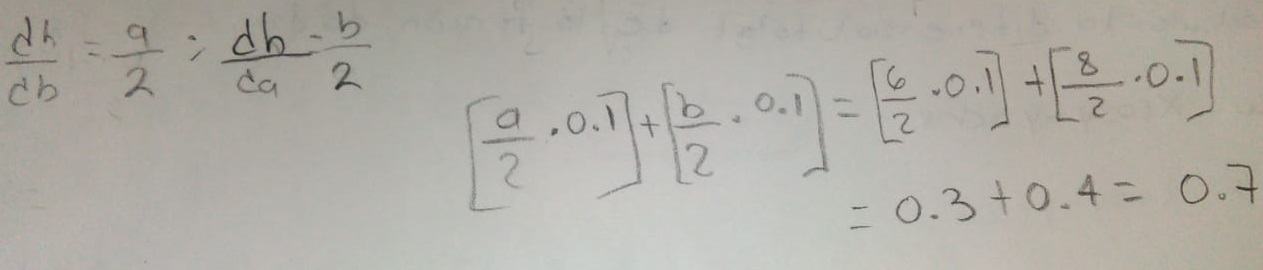 dh/db = a/2 ; dh/da = b/2
[a/2 . 0.1] + [b/2 . 0.1] = [6/2 . 0.1] + [8/2 . 0.1]
= 0.3 + 0.4 = 0.7